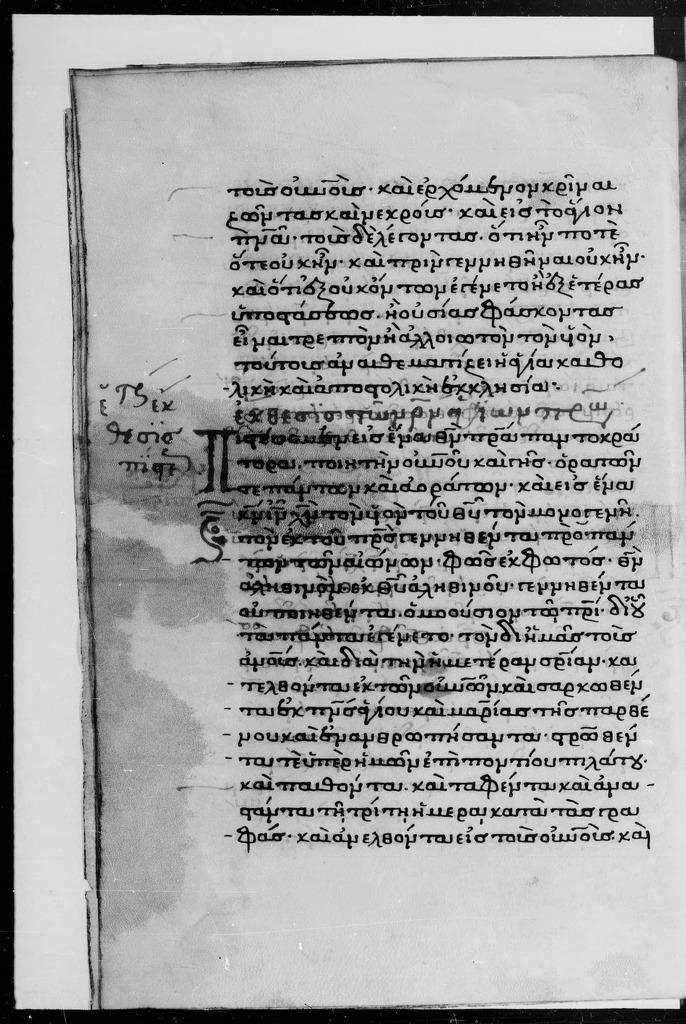 τοῖς οὐνοῖς · καὶ ἐρχόμενον κρῖναι
ζῶντας καὶ νεκρούς · καὶ εἰς τὸ ἅγιον
πνᾶ · τοὺς δὲ λέγοντας · ὅτι ἦν ποτὲ
ὅτε οὐκ ἦν · καὶ πρὶν γεννηθῆναι οὐκ ἦν ·
καὶ ὅτι ἐξ οὐκ ὄντων ἐγένετο ἢ ἐξ ἑτέρας
ὑποστάσεως · ἢ οὐσίας φάσκοντας
εἶναι τρεπτὸν ἢ ἀλλοιωτὸν τὸν ὑὸν ·
τούτοις ἀναθεματίζει ἡ ἁγία καθο
λικὴ καὶ ἀποστολικὴ ἐκκλησία ·
ἔκθεσις τῶν ρν ἁγίων πρων
ἔκ
θεσις
πίστε
Πιστεύομεν εἰς ἕνα θν πρα παντοκρά
τορα · ποιητὴν οὐνοῦ καὶ γῆς · ὁρατῶν
τε πάντων καὶ ἀοράτων · καὶ εἰς ἕνα
κν ιν χν τὸν ὑὸν τοῦ θυ τὸν μονογενῆ ·
τὸν ἐκ τοῦ πρς γεννηθέντα πρὸ πάν
των τῶν αἰώνων · φῶς ἐκ φωτός · θν
ἀληθινὸν ἐκ θυ ἀληθινοῦ · γεννηθέντα
οὐ ποιηθέντα · ὁμοούσιον τῶ πρι · δι οὗ
τὰ πάντα ἐγένετο · τὸν δι ἡμᾶς τοὺς
ἀνους · καὶ διὰ τὴν ἡμετέραν σριαν · κα
τελθόντα ἐκ τῶν οὐνῶν · καὶ σαρκωθέν
τα ἐκ πνς ἁγίου καὶ μαρίας τῆς παρθέ
νου καὶ ἐνανθρωπήσαντα · στρωθέν
τα τὲ ὑπὲρ ἡμῶν ἐπὶ ποντίου πιλάτου ·
καὶ παθόντα · καὶ ταφέντα καὶ ἀνα
στάντα τῆ τρίτη ἡμέρα κατὰ τὰς γρα
φάς · καὶ ἀνελθόντα εἰς τοὺς οὐνους · καὶ